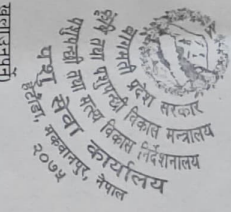 बागमती प्रदेश सरकार
कृषि तथा पशुपन्छी विकास मन्त्रालय
पशुपन्छी तथा मत्स्य विकास निर्देशनालय
पशु सेवा कार्यालय
हेटौंडा, मकवानपुर, नेपाल
२०७५